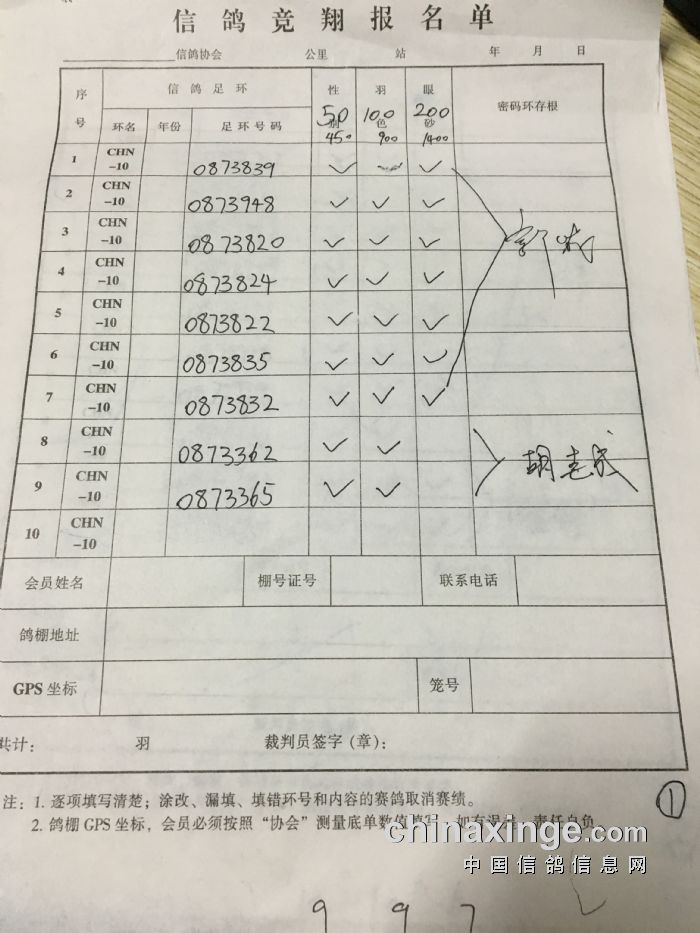 信鸽竞翔报名单
信鸽协会 公里 站 年 月 日
序号 信鸽足环 性别 羽色 眼砂 密码环存根
50 100 200
环名 年份 足环号码 450 900 1400
1 CHN-10 0873839 ✓ ✓ ✓
2 CHN-10 0873948 ✓ ✓ ✓
3 CHN-10 0873820 ✓ ✓ ✓
4 CHN-10 0873824 ✓ ✓ ✓
5 CHN-10 0873822 ✓ ✓ ✓
6 CHN-10 0873835 ✓ ✓ ✓
7 CHN-10 0873832 ✓ ✓ ✓
8 CHN-10 0873362 ✓ ✓
9 CHN-10 0873365 ✓ ✓
胡志成
10 CHN-10
会员姓名 棚号证号 联系电话
鸽棚地址
GPS 坐标 笼号
共计: 羽 裁判员签字(章):
注: 1. 逐项填写清楚;涂改、漏填、填错环号和内容的赛鸽取消赛绩。
①
2. 鸽棚 GPS 坐标,会员必须按照“协会”测量底单数值填写,如有误差,责任自负。
chinaxinge.com
中国信鸽信息网
997